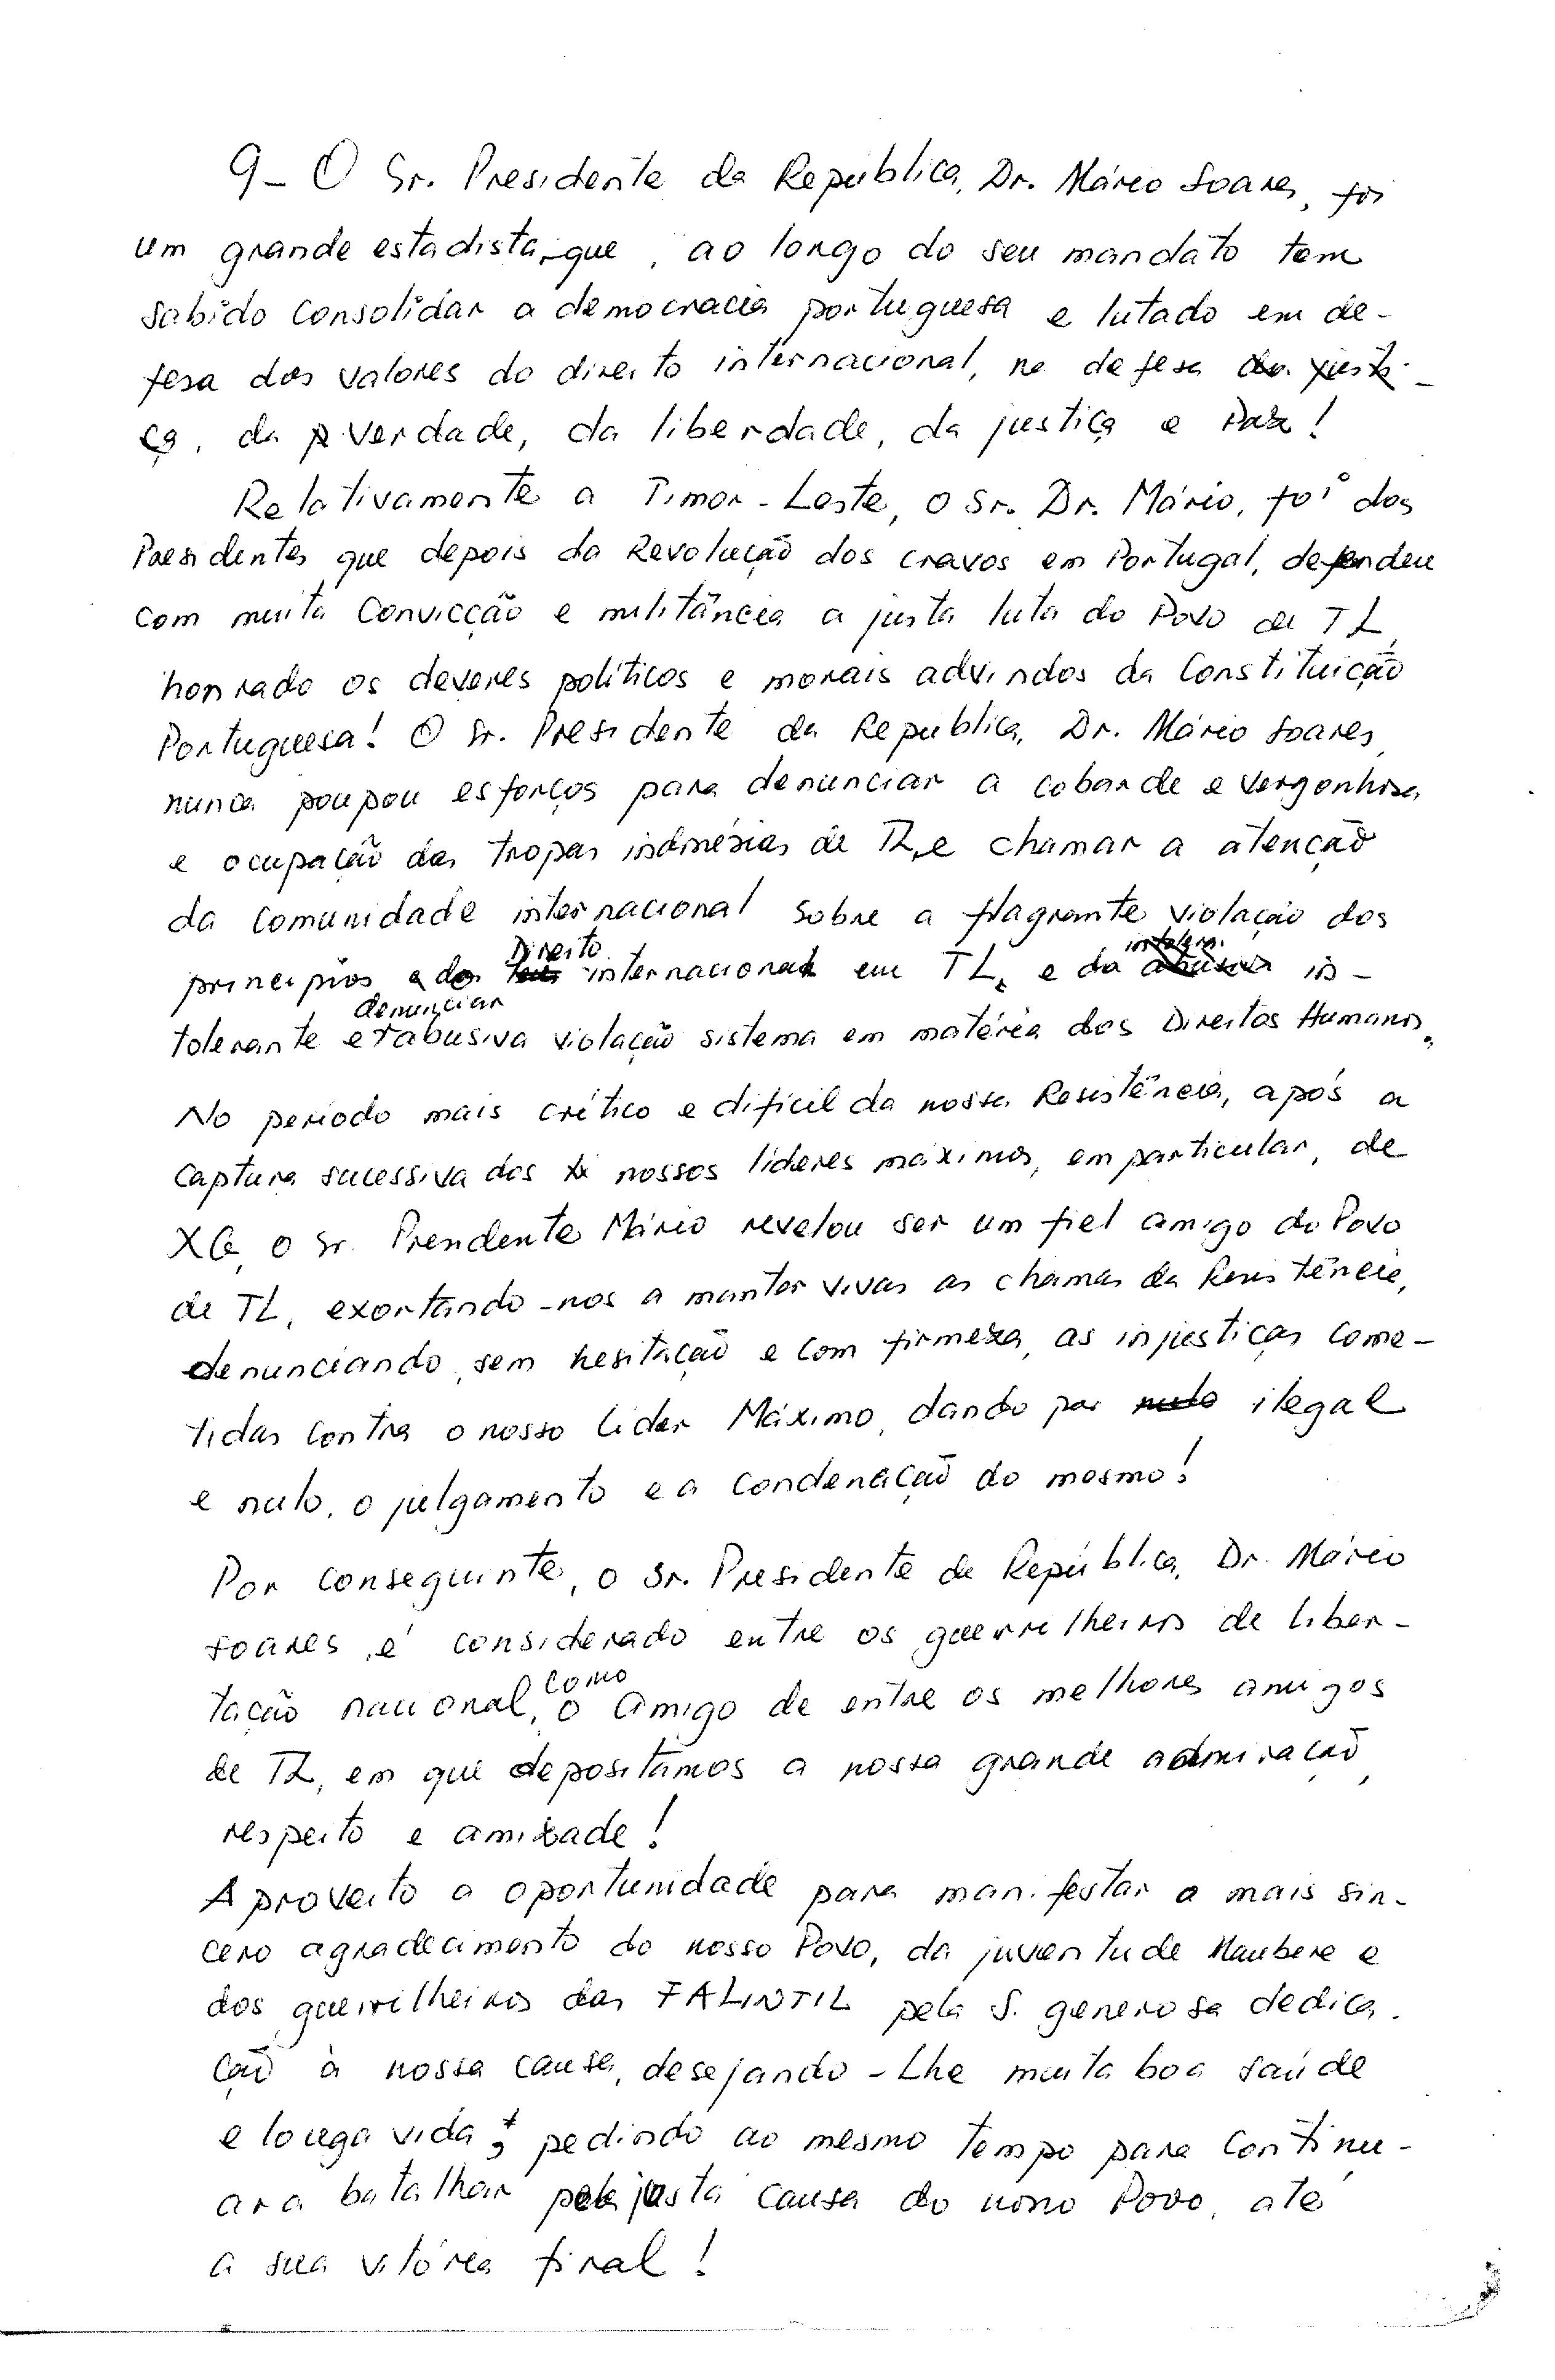 9- O Sr. Presidente da República, Dr. Mário Soares, foi
um grande estadista, que, ao longo do seu mandato tem
sabido consolidar a democracia portuguesa e lutado em de-
fesa dos valores do direito internacional, na defesa da justi-
ça, da verdade, da liberdade, da justiça e Paz!
Relativamente a Timor-Leste, o Sr. Dr. Mário, foi dos
Presidentes que depois da Revolução dos cravos em Portugal, defendeu
com muita convicção e militância a justa luta do Povo de TL,
honrado os deveres políticos e morais advindos da Constituição
Portuguesa! O Sr. Presidente da República, Dr. Mário Soares,
nunca poupou esforços para denunciar a cobarde e vergonhosa
e ocupação das tropas indonésias de TL, e chamar a atenção
da comunidade internacional sobre a flagrante violação dos
princípios e do Direito internacional em TL, e da in-
tolerante e denunciar abusiva violação sistema em matéria dos Direitos Humanos.
No período mais crítico e difícil da nossa Resistência, após a
captura sucessiva dos nossos líderes máximos, em particular, de
XG, o Sr. Presidente Mário revelou ser um fiel amigo do Povo
de TL, exortando-nos a manter vivas as chamas da Resistência,
denunciando, sem hesitação e com firmeza, as injustiças come-
tidas contra o nosso Líder Máximo, dando por ilegal
e nulo, o julgamento e a condenação do mesmo!
Por conseguinte, o Sr. Presidente de República, Dr. Mário
Soares, é considerado entre os guerrilheiros de liber-
tação nacional, como o amigo de entre os melhores amigos
de TL, em que depositamos a nossa grande admiração,
respeito e amizade!
Aproveito a oportunidade para manifestar o mais sin-
cero agradecimento do nosso Povo, da juventude Maubere e
dos guerrilheiros das FALINTIL pela S. generosa dedica-
ção à nossa causa, desejando-Lhe muita boa saúde
e longa vida, pedindo ao mesmo tempo para continu-
ar a batalhar pela justa causa do nosso Povo, até
a sua vitória final!